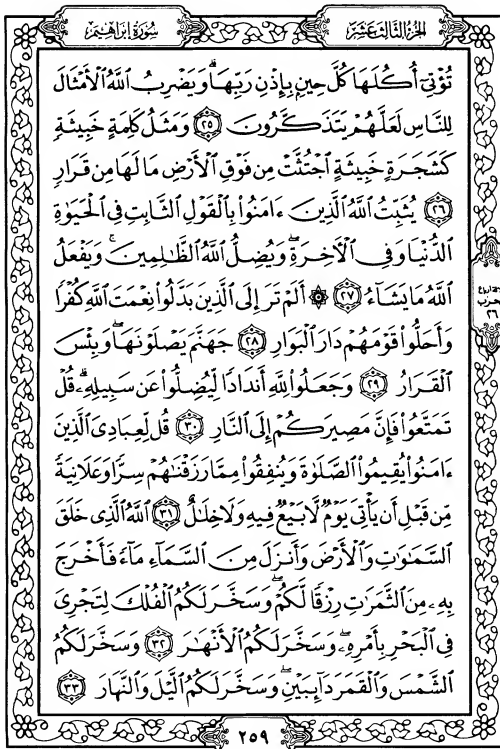 الجزء الثالث عشر
سورة إبراهيم
تُؤْتِىٓ أُكُلَهَا كُلَّ حِينٍۭ بِإِذْنِ رَبِّهَاۗ وَيَضْرِبُ ٱللَّهُ ٱلْأَمْثَالَ
لِلنَّاسِ لَعَلَّهُمْ يَتَذَكَّرُونَ ٢٥ وَمَثَلُ كَلِمَةٍ خَبِيثَةٍ
كَشَجَرَةٍ خَبِيثَةٍ ٱجْتُثَّتْ مِن فَوْقِ ٱلْأَرْضِ مَا لَهَا مِن قَرَارٍ
٢٦ يُثَبِّتُ ٱللَّهُ ٱلَّذِينَ ءَامَنُوا۟ بِٱلْقَوْلِ ٱلثَّابِتِ فِى ٱلْحَيَوٰةِ
ٱلدُّنْيَا وَفِى ٱلْـَٔاخِرَةِۖ وَيُضِلُّ ٱللَّهُ ٱلظَّـٰلِمِينَۚ وَيَفْعَلُ
ٱللَّهُ مَا يَشَآءُ ٢٧ ۞ أَلَمْ تَرَ إِلَى ٱلَّذِينَ بَدَّلُوا۟ نِعْمَتَ ٱللَّهِ كُفْرًا
وَأَحَلُّوا۟ قَوْمَهُمْ دَارَ ٱلْبَوَارِ ٢٨ جَهَنَّمَ يَصْلَوْنَهَاۖ وَبِئْسَ
ٱلْقَرَارُ ٢٩ وَجَعَلُوا۟ لِلَّهِ أَندَادًا لِّيُضِلُّوا۟ عَن سَبِيلِهِۦۗ قُلْ
تَمَتَّعُوا۟ فَإِنَّ مَصِيرَكُمْ إِلَى ٱلنَّارِ ٣٠ قُل لِّعِبَادِىَ ٱلَّذِينَ
ءَامَنُوا۟ يُقِيمُوا۟ ٱلصَّلَوٰةَ وَيُنفِقُوا۟ مِمَّا رَزَقْنَـٰهُمْ سِرًّا وَعَلَانِيَةً
مِّن قَبْلِ أَن يَأْتِىَ يَوْمٌ لَّا بَيْعٌ فِيهِ وَلَا خِلَـٰلٌ ٣١ ٱللَّهُ ٱلَّذِى خَلَقَ
ٱلسَّمَـٰوَٰتِ وَٱلْأَرْضَ وَأَنزَلَ مِنَ ٱلسَّمَآءِ مَآءً فَأَخْرَجَ
بِهِۦ مِنَ ٱلثَّمَرَٰتِ رِزْقًا لَّكُمْۖ وَسَخَّرَ لَكُمُ ٱلْفُلْكَ لِتَجْرِىَ
فِى ٱلْبَحْرِ بِأَمْرِهِۦۖ وَسَخَّرَ لَكُمُ ٱلْأَنْهَـٰرَ ٣٢ وَسَخَّرَ لَكُمُ
ٱلشَّمْسَ وَٱلْقَمَرَ دَآئِبَيْنِۖ وَسَخَّرَ لَكُمُ ٱلَّيْلَ وَٱلنَّهَارَ ٣٣
حزب
٢٦
٢٥٩